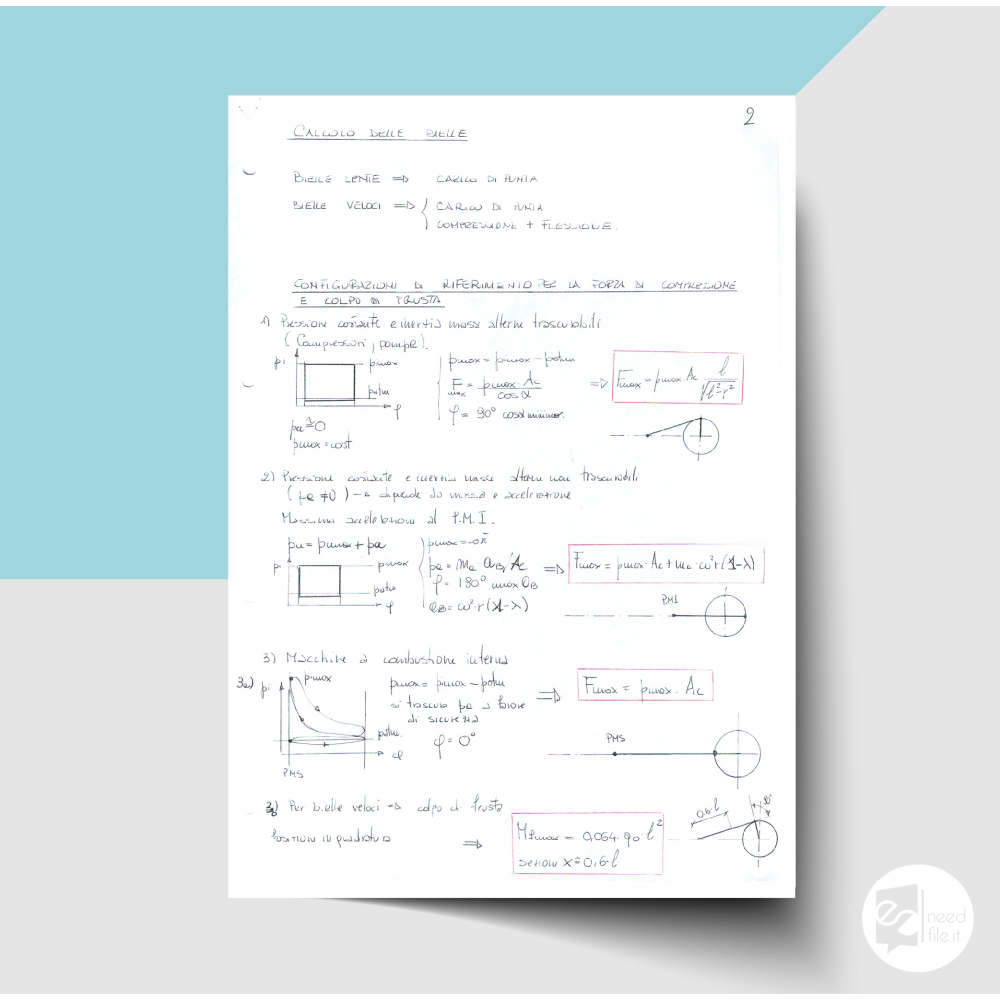 2
CALCOLO DELLE BIELLE
BIELLE LENTE => CARICO DI PUNTA
BIELLE VELOCI => { CARICO DI PUNTA
COMPRESSIONE + FLESSIONE.
CONFIGURAZIONI DI RIFERIMENTO PER LA FORZA DI COMPRESSIONE
E COLPO DI FRUSTA
1) Pressione costante e inertia masse alterne trascurabili
(Compressori, pompe).
pi pimax pmax = pimax - patm
patm F max = pmax · Ac / cos α => Fmax = pmax · Ac l / √(l²-r²)
φ φ = 90° cosα minimo.
pa ≅ 0
pmax = cost
2) Pressione costante e inertia masse alterne non trascurabili
(pa ≠ 0) -> dipende da massa e accelerazione
Massima accelerazione al P.M.I.
pu = pmax + pa
p pmax pa = ma aB/Ac => Fmax = pmax · Ac + ma · ω²r(1-λ)
φ = 180° max aB
patm aB = ω²·r(1-λ) PMI
φ
3) Macchine a combustione interna
3a) pi pmax pmax = pimax - patm => Fmax = pmax · Ac
si trascura pa a favore
di sicurezza
patm φ = 0° PMS
φ
PMS
3b) Per bielle veloci -> colpo di frusta 0.6·l 90°
Posizione in quadratura => Mfmax = 0,064·q0·l²
x ≅ 0,6·l
need
file.it